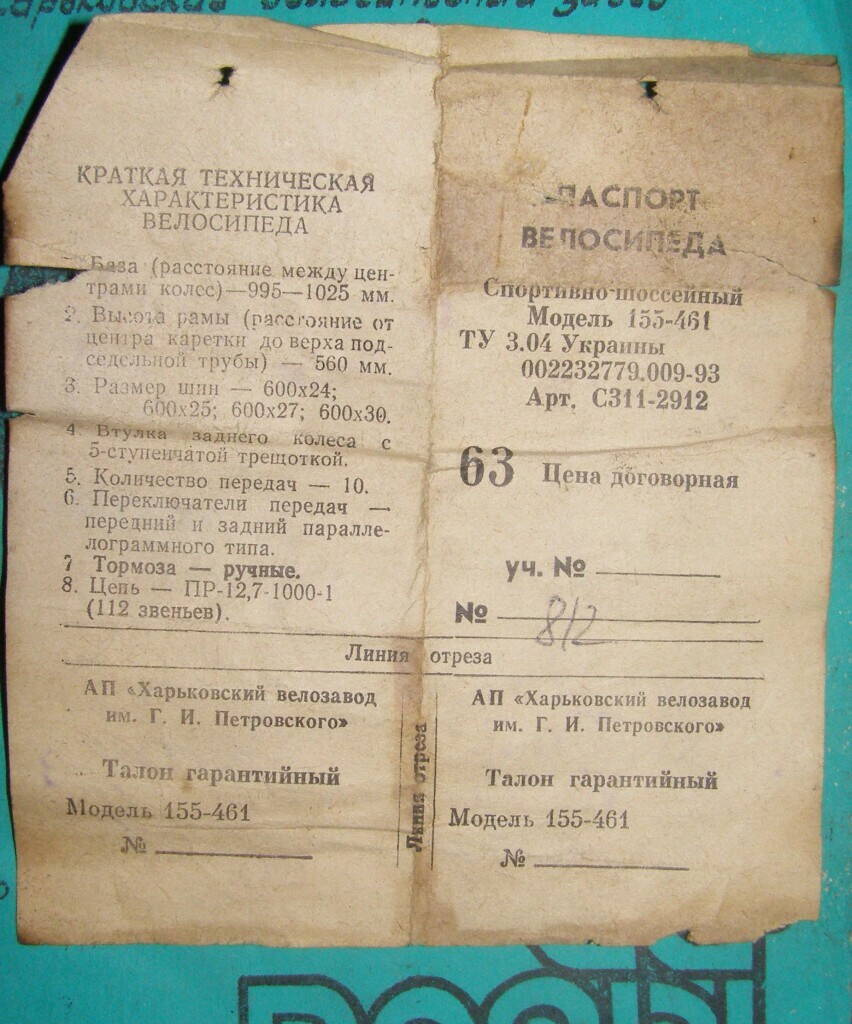 Харьковский велосипедный завод
КРАТКАЯ ТЕХНИЧЕСКАЯ
ХАРАКТЕРИСТИКА
ВЕЛОСИПЕДА
База (расстояние между цен-
трами колес)—995—1025 мм.
2. Высота рамы (расстояние от
центра каретки до верха под-
седельной трубы) — 560 мм.
3. Размер шин — 600х24;
600х25; 600х27; 600х30.
4. Втулка заднего колеса с
5-ступенчатой трещоткой.
5. Количество передач — 10.
6. Переключатели передач —
передний и задний паралле-
лограммного типа.
7 Тормоза — ручные.
8. Цепь — ПР-12,7-1000-1
(112 звеньев).
ПАСПОРТ
ВЕЛОСИПЕДА
Спортивно-шоссейный
Модель 155-461
ТУ 3.04 Украины
002232779.009-93
Арт. С311-2912
63 Цена договорная
уч. №
№ 812
Линия отреза
АП «Харьковский велозавод
им. Г. И. Петровского»
Талон гарантийный
Модель 155-461
№
Линия отреза
АП «Харьковский велозавод
им. Г. И. Петровского»
Талон гарантийный
Модель 155-461
№